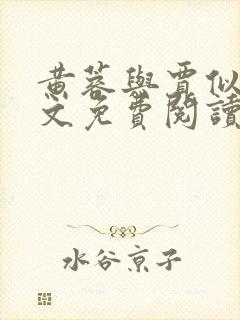 黃蓉與賈似
文免費閱讀
水谷京子